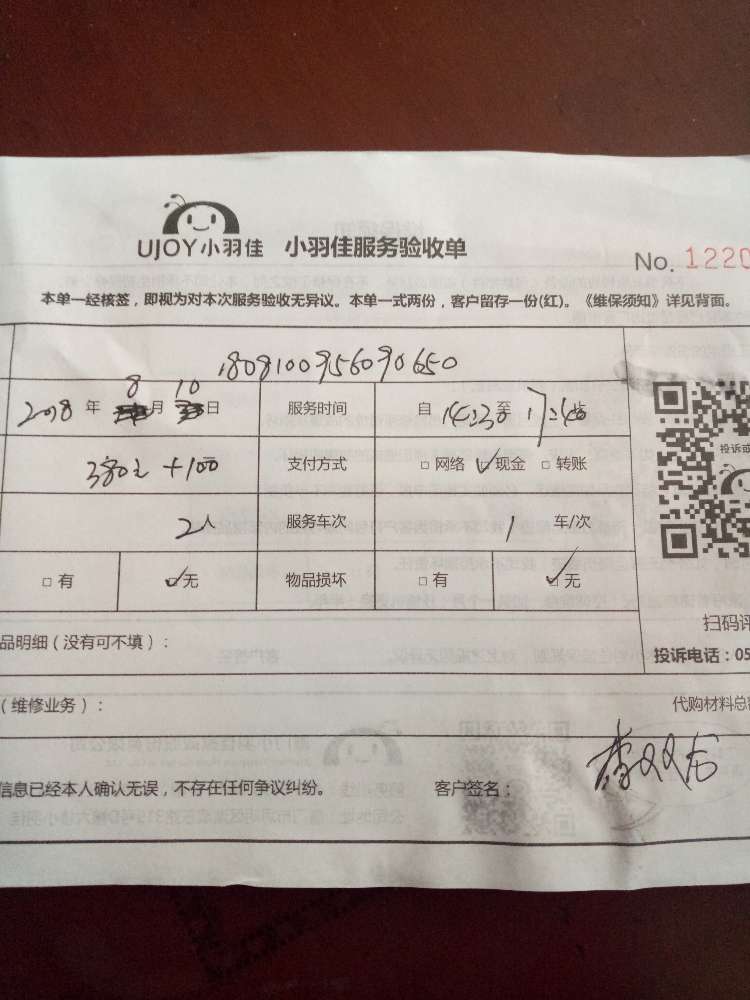 UJOY小羽佳 小羽佳服务验收单
No. 1220
本单一经核签，即视为对本次服务验收无异议。本单一式两份，客户留存一份(红)。《维保须知》详见背面。
1808100956090650
2018年 8月 10日 服务时间 自 14:30 至 17:40 止
380元+100 支付方式 □网络 ☑现金 □转账
2人 服务车次 1 车/次
□有 ☑无 物品损坏 □有 ☑无
扫码评
品明细（没有可不填）：
投诉电话：05
（维修业务）：
代购材料总额
信息已经本人确认无误，不存在任何争议纠纷。 客户签名：